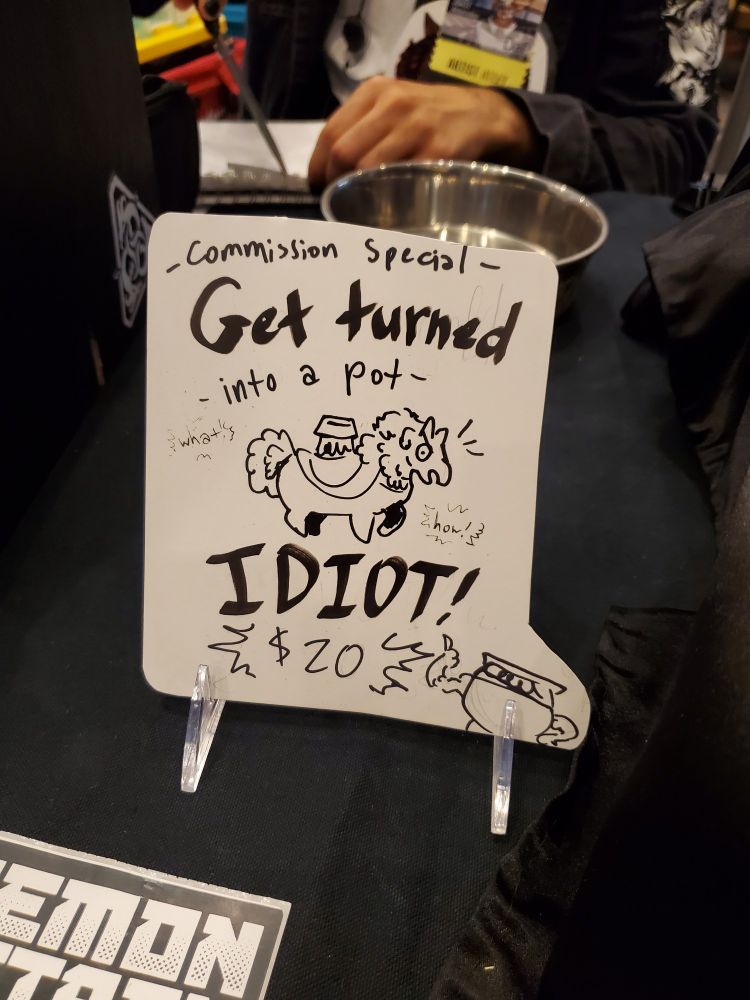 - Commission Special -
Get turned
- into a pot -
what!
how!
IDIOT!
$20
EMON